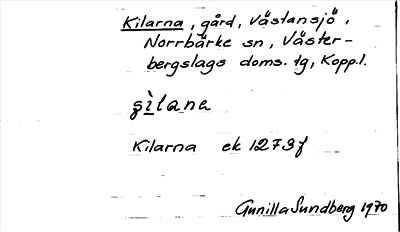 Kilarna, gård, Västansjö,
Norrbärke sn, Väster-
bergslags doms. tg, Kopp.l.
şìlana
Kilarna ek 1273f
Gunilla Sundberg 1970